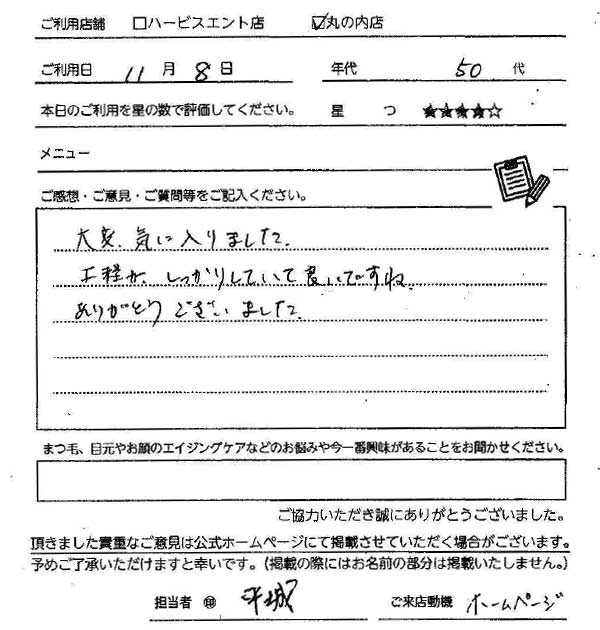 ご利用店舗 □ハービスエント店 ☑丸の内店
ご利用日 11月8日 年代 50代
本日のご利用を星の数で評価してください。 星 つ ★★★★☆
メニュー
ご感想・ご意見・ご質問等をご記入ください。
大変、気に入りました。
工程が、しっかりしていて良いですね。
ありがとうございました。
まつ毛、目元やお顔のエイジングケアなどのお悩みや今一番興味があることをお聞かせください。
ご協力いただき誠にありがとうございました。
頂きました貴重なご意見は公式ホームページにて掲載させていただく場合がございます。
予めご了承いただけますと幸いです。(掲載の際にはお名前の部分は掲載いたしません。)
担当者 ㊞ 平城 ご来店動機 ホームページ